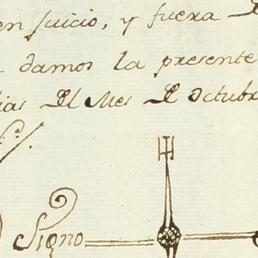 en juicio, y fuera
damos la presente
dias del Mes de octubr
Signo